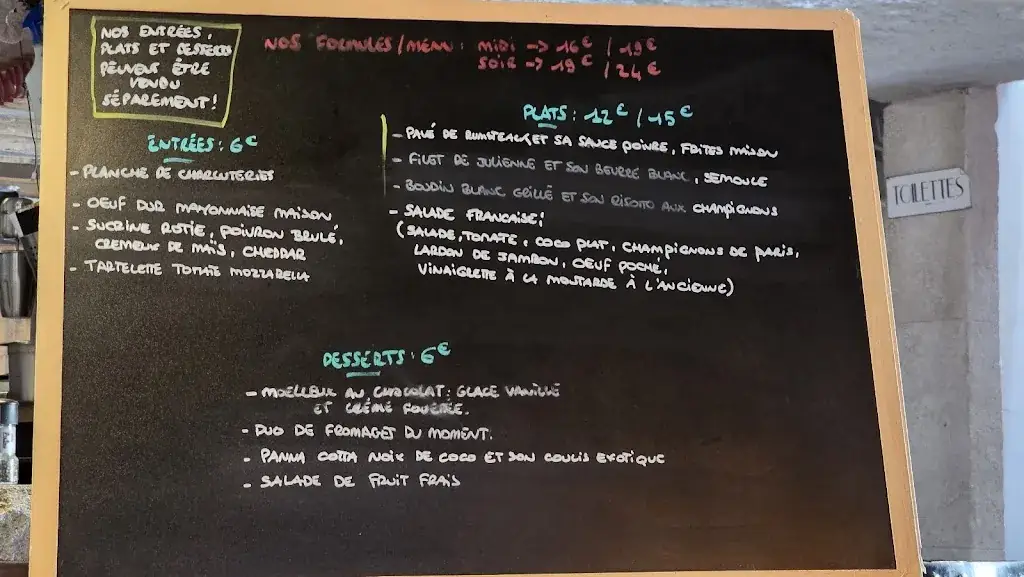 NOS ENTRÉES,
PLATS ET DESSERTS
PEUVENT ÊTRE
VENDU
SÉPAREMENT!
NOS FORMULES/MENU: MIDI -> 16€ / 19€
SOIR -> 19€ / 24€
ENTRÉES: 6€
- PLANCHE DE CHARCUTERIES
- OEUF DUR MAYONNAISE MAISON
- SUCRINE ROTIE, POIVRON BRULÉ,
CREMEUX DE MAÏS, CHEDDAR
- TARTELETTE TOMATE MOZZARELLA
PLATS: 12€ / 15€
- PAVÉ DE RUMSTEACK ET SA SAUCE POIVRE, FRITES MAISON
- FILET DE JULIENNE ET SON BEURRE BLANC, SEMOULE
- BOUDIN BLANC GRILLÉ ET SON RISOTTO AUX CHAMPIGNONS
- SALADE FRANCAISE:
(SALADE, TOMATE, COCO PLAT, CHAMPIGNONS DE PARIS,
LARDON DE JAMBON, OEUF POCHE,
VINAIGRETTE À LA MOUTARDE À L'ANCIENNE)
DESSERTS: 6€
- MOELLEUX AU CHOCOLAT: GLACE VANILLE
ET CRÈME FOUETTÉE.
- DUO DE FROMAGES DU MOMENT.
- PANNA COTTA NOIX DE COCO ET SON COULIS EXOTIQUE
- SALADE DE FRUIT FRAIS
TOILETTES